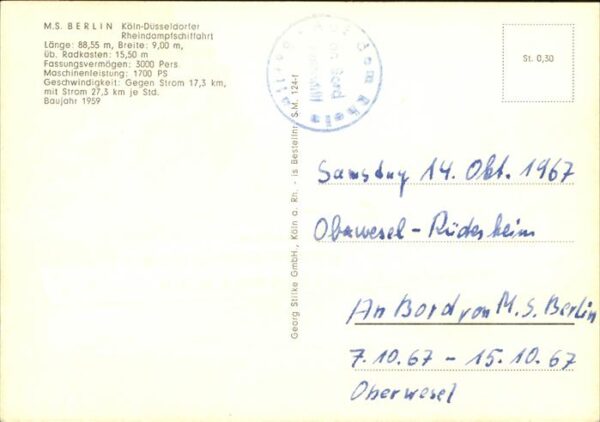 M.S. BERLIN Köln-Düsseldorfer
Rheindampfschiffahrt
Länge: 88,55 m, Breite: 9,00 m,
üb. Radkasten: 15,50 m
Fassungsvermögen: 3000 Pers.
Maschinenleistung: 1700 PS
Geschwindigkeit: Gegen Strom 17,3 km,
mit Strom 27,3 km je Std.
Baujahr 1959
Georg Stilke GmbH., Köln a. Rh. - is Bestellnr. S.M. 124-f
dem Rhein
St. 0,30
Samstag 14. Okt. 1967
Oberwesel - Rüdesheim
An Bord von M.S. Berlin
7.10.67 - 15.10.67
Oberwesel